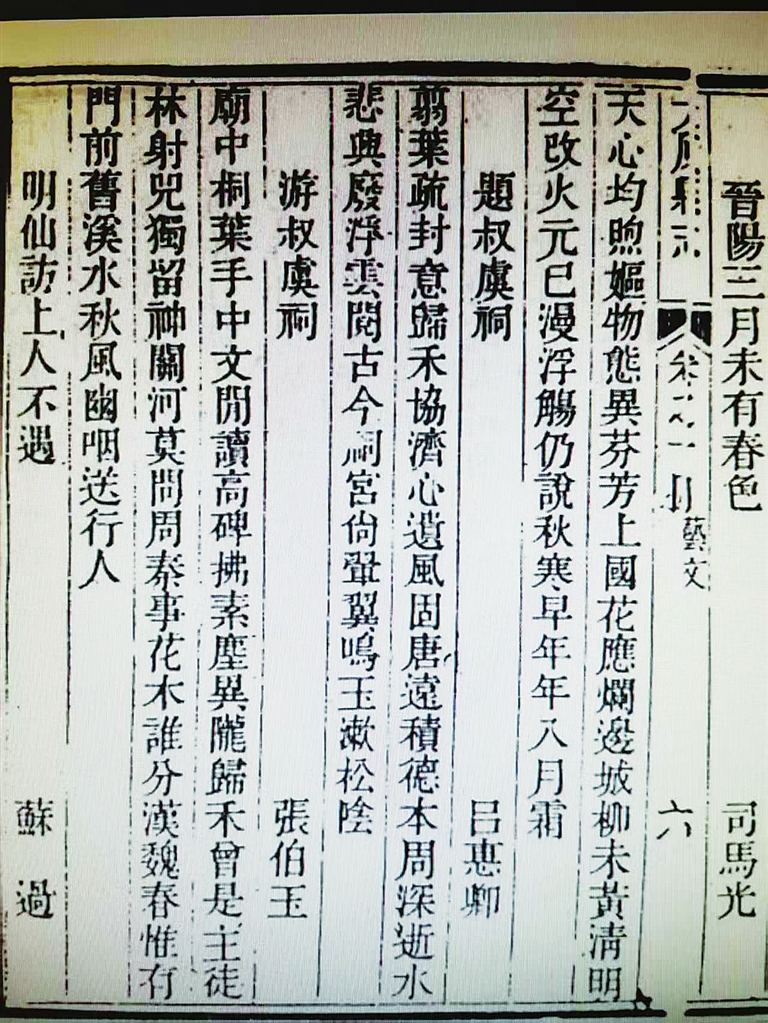 晉陽三月未有春色 司馬光
藝文 六
天心均煦嫗物態異芬芳上國花應爛邊城柳未黃淸明
空改火元巳漫浮觴仍說秋寒早年年八月霜
題叔虞祠 呂惠卿
翦葉疏封意歸禾協濟心遺風固唐遠積德本周深逝水
悲興廢浮雲閱古今祠宮尙翬翼鳴玉漱松陰
游叔虞祠 張伯玉
廟中桐葉手中文閒讀高碑拂素塵異隴歸禾曾是主徒
林射兕獨留神關河莫問周秦事花木誰分漢魏春惟有
門前舊溪水秋風幽咽送行人
明仙訪上人不遇 蘇過